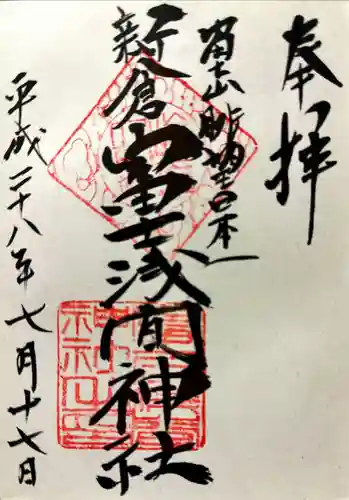 奉拝
眺望日本一
新倉
山富士浅間神社
平成二十八年七月十七日